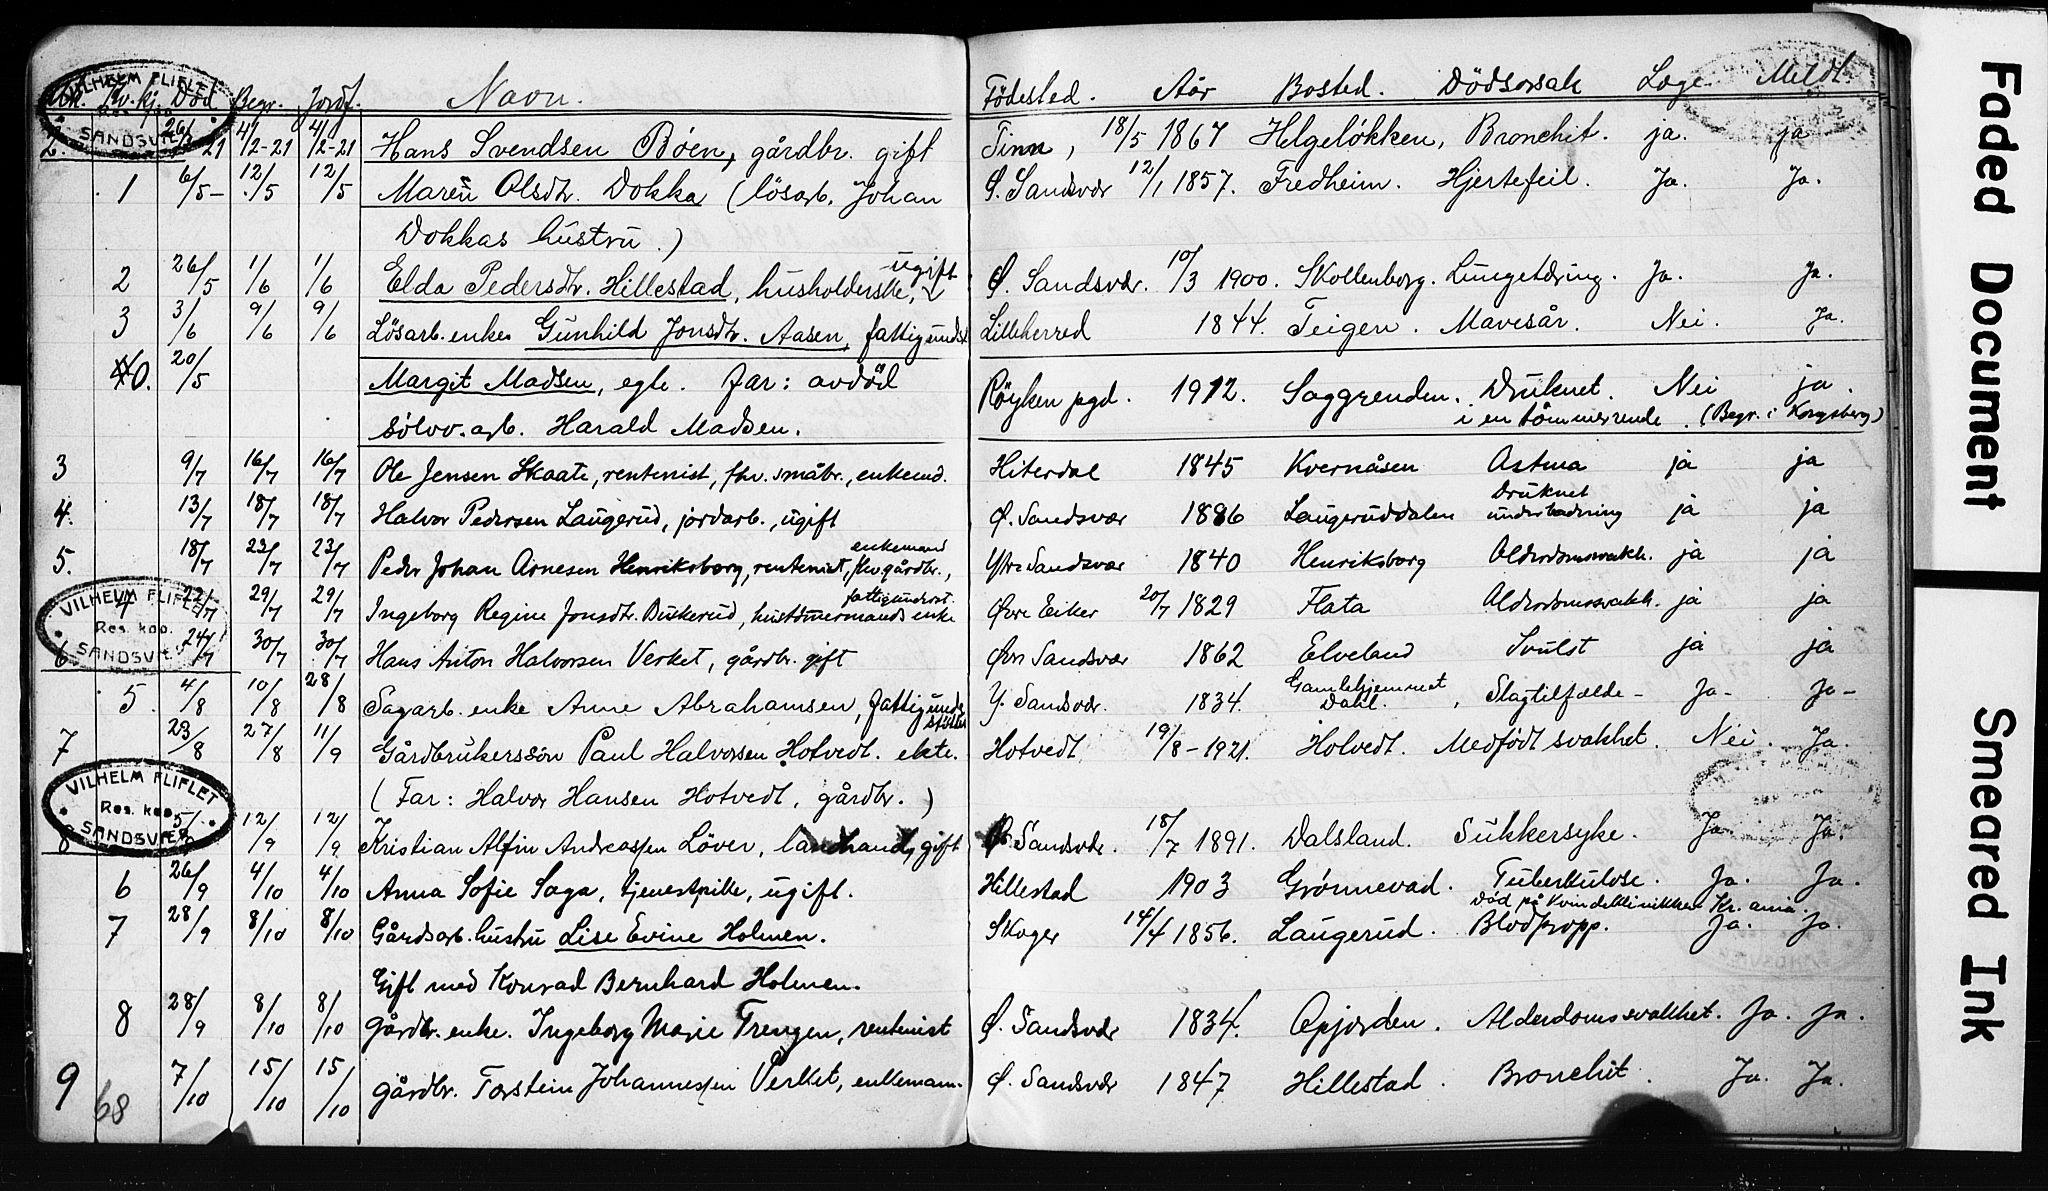 Mk. Kv.kj. Død Begr. Jordf. Navn. Fødested. Aar Bosted. Dødsorsak Læge Meldt
2. 26/1 21 4/2-21 4/2-21 Hans Svendsen Bøen, gårdbr. gift Tinn, 18/5 1867 Helgeløkken, Bronchit. ja. ja
1 6/5- 12/5 12/5 Maren Olsdtr. Dokka (løsarb. Johan Ø. Sandsvær 12/1 1857. Fredheim. Hjertefeil. Ja. Ja.
Dokkas hustru.)
2 26/5 1/6 1/6 Elda Pedersdtr. Hillestad, husholderske, ugift Ø. Sandsvær. 10/3 1900. Skollenborg. Lungetæring. Ja. Ja.
3 3/6 9/6 9/6 Løsarb. enke Gunhild Jonsdtr. Aasen, fattigunderst Lilleherred 1844. Teigen. Mavesår. Nei. Ja.
0. 20/5 Margit Madsen, egte. Far: avdød Røyken pgd. 1912. Saggrenden. Druknet Nei ja.
sølvv.arb. Harald Madsen. i en tømmerrende. (Begr. i Kongsberg)
3 9/7 16/7 16/7 Ole Jensen Skaate, rentenist, fhv. småbr., enkemd. Hiterdal 1845 Kvernåsen Astma ja ja
4. 13/7 18/7 18/7 Halvor Pedersen Laugerud, jordarb., ugift Ø. Sandsvær 1886 Laugeruddalen Druknet under badning ja ja
5. 18/7 23/7 23/7 Peder Johan Arnesen Henriksborg, rentenist, fhv gårdbr., enkemand Ytre Sandsvær 1840 Henriksborg Alderdomssvakh. ja ja
4 22/7 29/7 29/7 Ingeborg Regine Jonsdtr. Buskerud, husdmermands enke fattigunderst. Øvre Eiker 20/7 1829 Flata Alderdomssvakh. ja ja
6 24/7 30/7 30/7 Hans Anton Halvorsen Verket, gårdbr. gift Øvre Sandsvær 1862 Elveland Svulst ja ja
5. 4/8 10/8 28/8 Sagarb. enke Anne Abrahamsen, fattigunderstøttet Y. Sandsvær. 1834. Gamlehjemmet Dahl. Slagtilfælde - Ja- Ja-
7 23/8 27/8 11/9 Gårdbrukerssøn Paul Halvorsen Hotvedt. ekte. Hotvedt 19/8-1921. Hotvedt. Medfødt svakhet. Nei. Ja.
(Far: Halvor Hansen Hotvedt, gårdbr.)
8 5/9 12/9 12/9 Kristian Alfin Andreassen Løver, landhand, gift Ø. Sandsvær. 18/7 1891. Dalsland. Sukkersyke. Ja Ja.
6 26/9 4/10 4/10 Anna Sofie Saga, tjenestpike, ugift. Hillestad 1903 Grønnevad. Tuberkulose. Ja. Ja.
Død på Kvindeklinikken Kr.ania.
7 28/9 8/10 8/10 Gårdsarb. hustru Lise Evine Holmen. Skoger 14/4 1856. Laugerud. Blodpropp. Ja. Ja.
Gift med Konrad Bernhard Holmen.
8 28/9 8/10 8/10 Gårdbr. enke. Ingeborg Marie Trengen, rentenist Ø. Sandsvær 1834. Opjorden. Alderdomssvakhet. Ja. Ja.
9 7/10 15/10 15/10 Gårdbr. Torstein Johannessen Verket, enkemann. Ø. Sandsvær 1847 Hillestad. Bronchit. Ja. Ja.
68
VILHELM FLIFLET
Res. kap.
SANDSVÆR
VILHELM FLIFLET
Res. kap.
SANDSVÆR
VILHELM FLIFLET
Res. kap.
SANDSVÆR
Faded Document
Smeared Ink